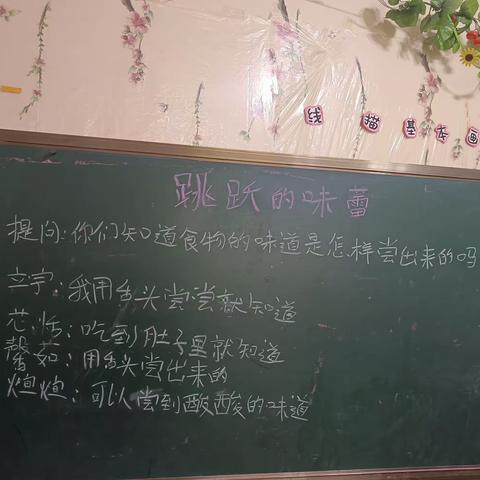 线描基本画
跳跃的味蕾
提问:你们知道食物的味道是怎样尝出来的吗
立宇:我用舌头尝尝就知道
芯恬:吃到肚子里就知道
馨茹:用舌头尝出来的
烜烜:可以尝到酸酸的味道